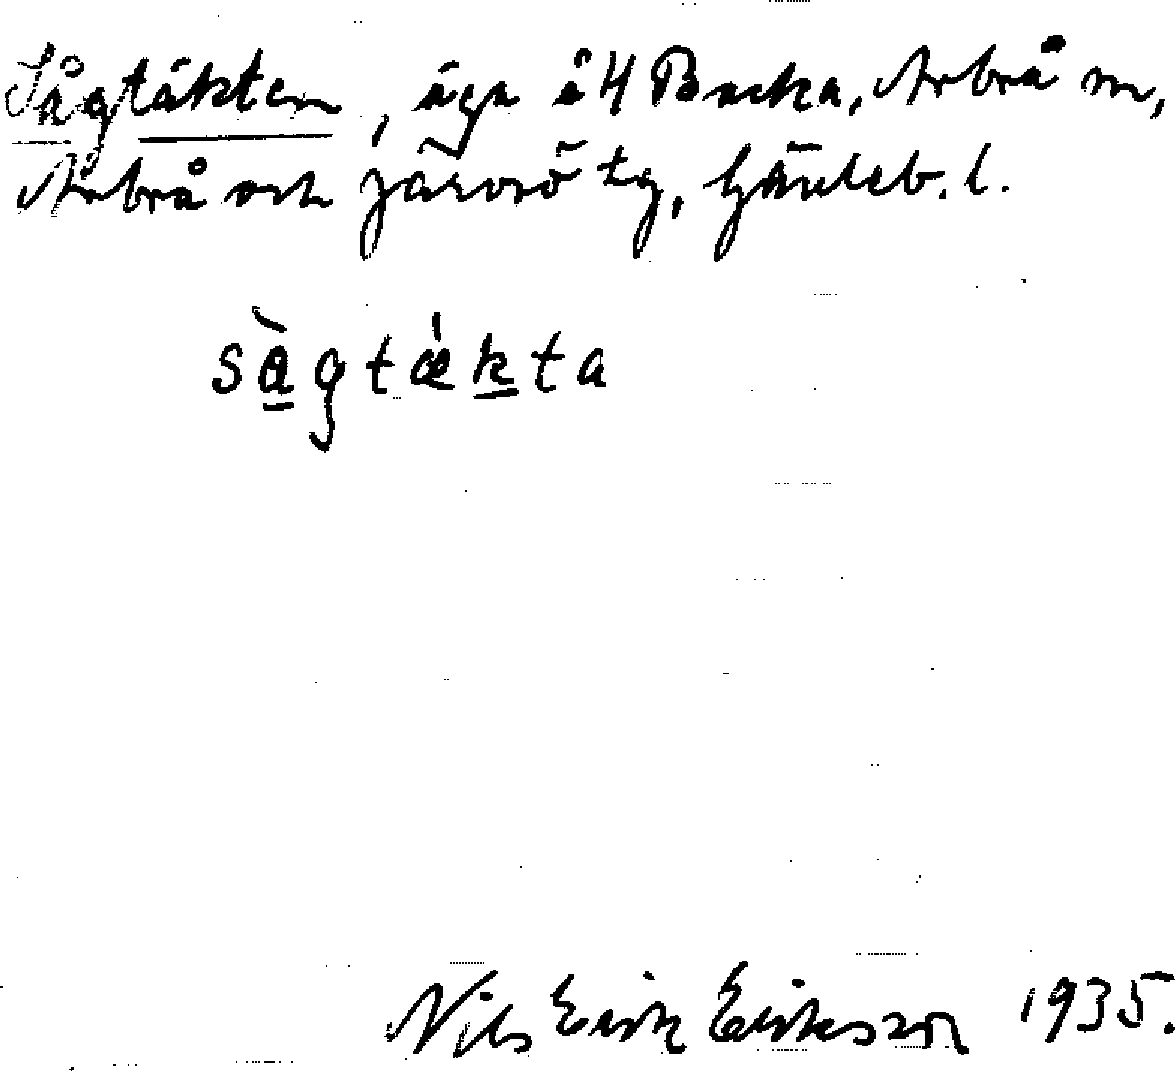 Sågtäkten, äga å 4 Backa, Arbrå sn,
Arbrå och Järvsö tg, Gävleb. l.
sàgtǽkta
Nils Erik Eriksson 1935.